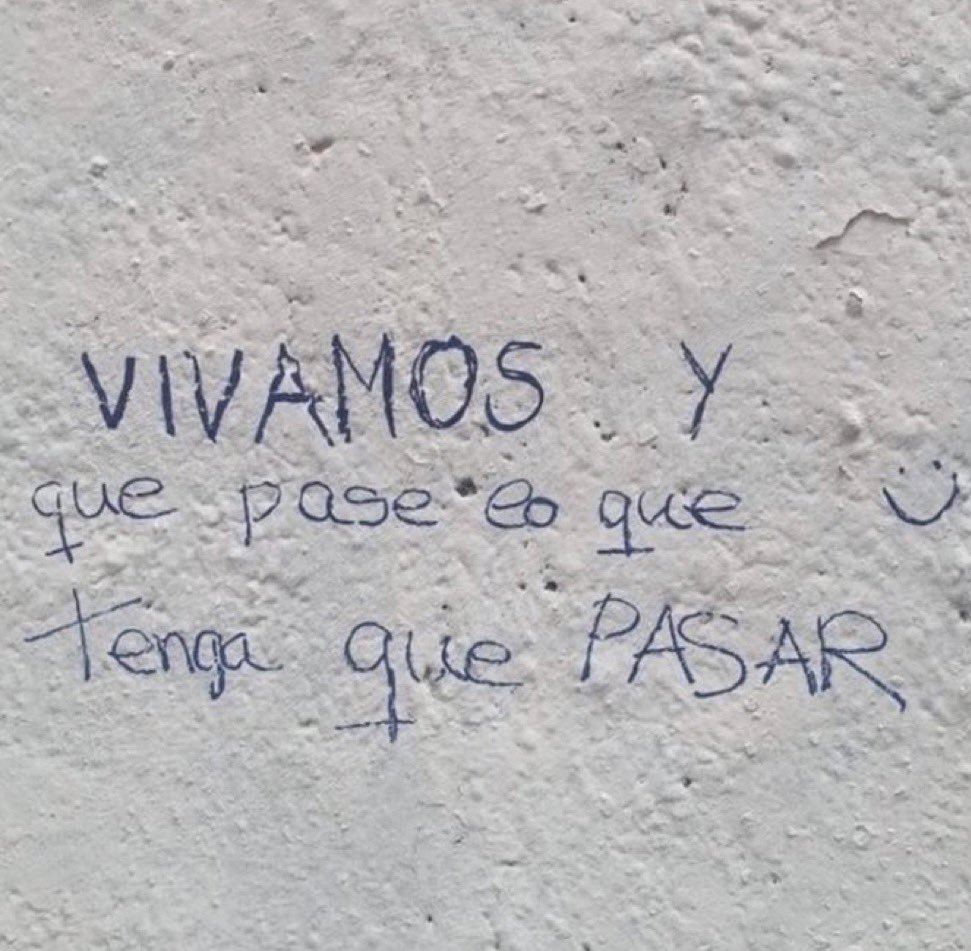 VIVAMOS Y
que pase lo que
Tenga que PASAR